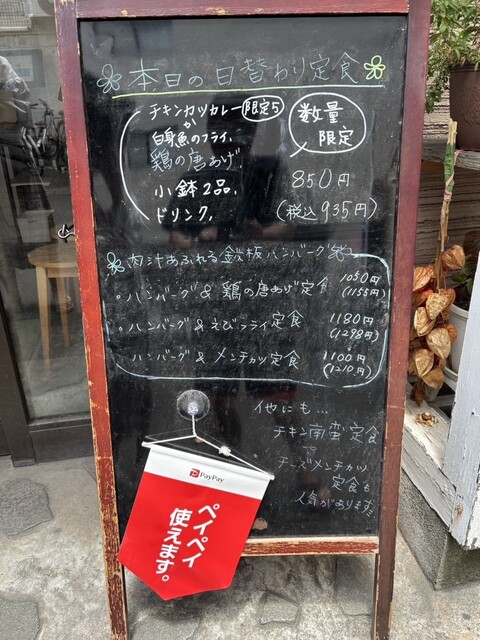 本日の日替わり定食
チキンカツカレー 限定5
か
白身魚のフライ.
鶏の唐あげ.
小鉢2品.
ドリンク.
数量
限定
850円
(税込935円)
肉汁あふれる鉄板ハンバーグ
・ハンバーグ&鶏の唐あげ定食 1050円
(1155円)
・ハンバーグ&えびフライ定食 1180円
(1298円)
ハンバーグ&メンチカツ定食 1100円
(1210円)
他にも…
チキン南蛮定食
チーズメンチカツ
定食も
人気があります。
PayPay
ペイペイ
使えます。